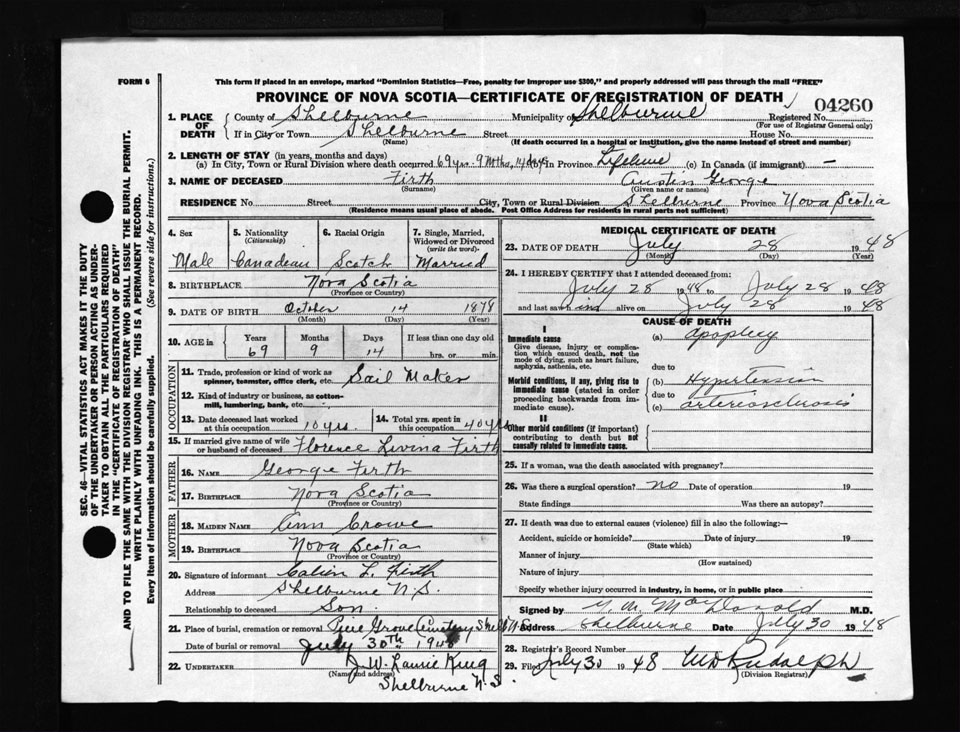 FORM 6
This form if placed in an envelope, marked "Dominion Statistics—Free, penalty for improper use $300," and properly addressed will pass through the mail "FREE"
PROVINCE OF NOVA SCOTIA—CERTIFICATE OF REGISTRATION OF DEATH
04260
1. PLACE OF DEATH
County of Shelburne Municipality of Shelburne Registered No.
(For use of Registrar General only)
If in City or Town Shelburne Street House No.
(Name) (If death occurred in a hospital or institution, give the name instead of street and number)
2. LENGTH OF STAY (in years, months and days)
(a) In City, Town or Rural Division where death occurred 69 yrs. 9 Mths, 14 days In Province Lifetime (c) In Canada (if immigrant) —
3. NAME OF DECEASED Firth Austin George
(Surname) (Given name or names)
RESIDENCE No. Street City, Town or Rural Division Shelburne Province Nova Scotia
(Residence means usual place of abode. Post Office Address for residents in rural parts not sufficient)
4. Sex 5. Nationality 6. Racial Origin 7. Single, Married, Widowed or Divorced
(Citizenship) (write the word)
Male Canadean Scotch Married
8. BIRTHPLACE Nova Scotia
(Province or Country)
9. DATE OF BIRTH October 14 1878
(Month) (Day) (Year)
10. AGE in Years Months Days If less than one day old
69 9 14 hrs. or min.
OCCUPATION
11. Trade, profession or kind of work as spinner, teamster, office clerk, etc. Sail Maker
12. Kind of industry or business, as cotton-mill, lumbering, bank, etc.
13. Date deceased last worked at this occupation 10 yrs. 14. Total yrs. spent in this occupation 40 yrs
15. If married give name of wife or husband of deceased Florence Levina Firth
FATHER
16. NAME George Firth
17. BIRTHPLACE Nova Scotia
(Province or Country)
MOTHER
18. MAIDEN NAME Ann Crowe
19. BIRTHPLACE Nova Scotia
(Province or Country)
20. Signature of informant L. Firth
Address Shelburne N.S.
Relationship to deceased Son.
21. Place of burial, cremation or removal Pine Grove Cemetery Shelb N.S.
Date of burial or removal July 30th 1948
22. UNDERTAKER J.W. Laurie King
(Name and address) Shelburne N.S.
MEDICAL CERTIFICATE OF DEATH
23. DATE OF DEATH July 28 1948
(Month) (Day) (Year)
24. I HEREBY CERTIFY that I attended deceased from:
July 28 1948 to July 28 1948
and last saw him alive on July 28 1948
CAUSE OF DEATH
I
Immediate cause (a) Apoplexy
Give disease, injury or complication which caused death, not the mode of dying, such as heart failure, asphyxia, asthenia, etc.
due to
Morbid conditions, if any, giving rise to immediate cause (stated in order proceeding backwards from immediate cause).
(b) Hypertension
due to
(c) arteriosclerosis
II
Other morbid conditions (if important) contributing to death but not causally related to immediate cause.
25. If a woman, was the death associated with pregnancy?
26. Was there a surgical operation? no Date of operation 19
State findings Was there an autopsy?
27. If death was due to external causes (violence) fill in also the following:—
Accident, suicide or homicide? Date of injury 19
(State which)
Manner of injury
(How sustained)
Nature of injury
Specify whether injury occurred in industry, in home, or in public place
Signed by MacDonald M.D.
Address Shelburne Date July 30 1948
28. Registrar's Record Number
29. Filed July 30 1948 Rudolph
(Division Registrar)
SEC. 46—VITAL STATISTICS ACT MAKES IT THE DUTY
OF THE UNDERTAKER OR PERSON ACTING AS UNDERTAKER
TO OBTAIN ALL THE PARTICULARS REQUIRED
IN THE "CERTIFICATE OF REGISTRATION OF DEATH"
AND TO FILE THE SAME WITH THE DIVISION REGISTRAR WHO SHALL ISSUE THE BURIAL PERMIT.
WRITE PLAINLY WITH UNFADING INK. THIS IS A PERMANENT RECORD.
Every item of information should be carefully supplied. (See reverse side for instructions.)